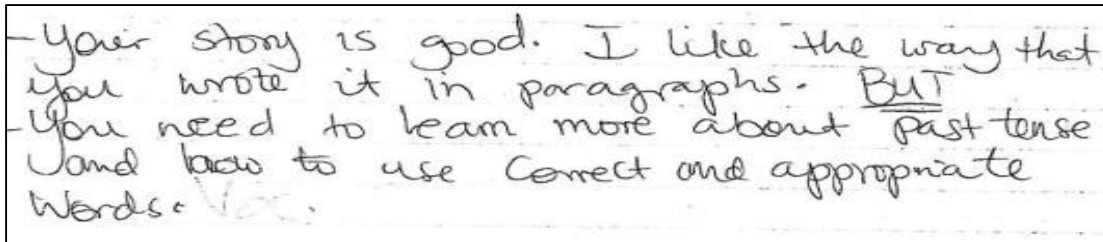 - Your story is good. I like the way that
you wrote it in paragraphs. BUT
- You need to learn more about past tense
and how to use correct and appropriate
words.